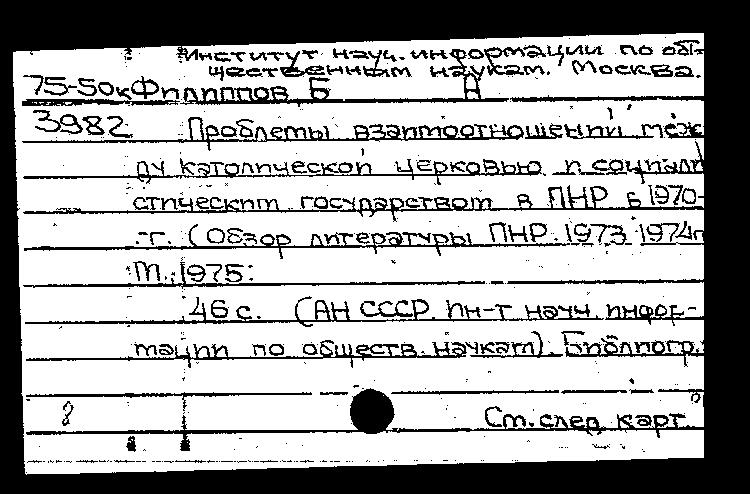 Институт науч. информации по об-
щественным наукам. Москва.
75-50к Филиппов Б А
3982 Проблемы взаимоотношений меж
ду католической церковью и социали
стическим государством в ПНР в 1970-
-г. (Обзор литературы ПНР. 1973 1974г
М., 1975.
46 с. (АН СССР. Ин-т науч. инфор-
мации по обществ. наукам). Библиогр.:
8 См. след. карт.